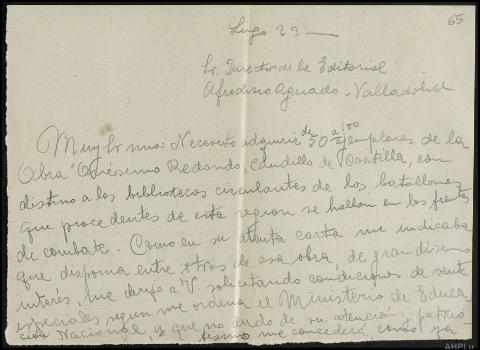 65
Lugo 23 —
Sr. Director de la Editorial
Afrodisio Aguado - Valladolid
Muy Sr mio: Necesito adquirir de 50 a 100 ejemplares de la
Obra "Onésimo Redondo, Caudillo de Castilla, con
distino a las bibliotecas circulantes de los batallones
que procedentes de esta region se hallan en los frentes
de combate. Como en su atenta carta me indicaba
que disponia entre otras de esa obra, de grandisimo
interés, me dirijo a V. solicitando condiciones de venta
especiales segun me ordena el Ministerio de Educa-
cion Nacional, y que no dudo de su atención y patrio-
tismo me concederá, como ya-
AHPLu